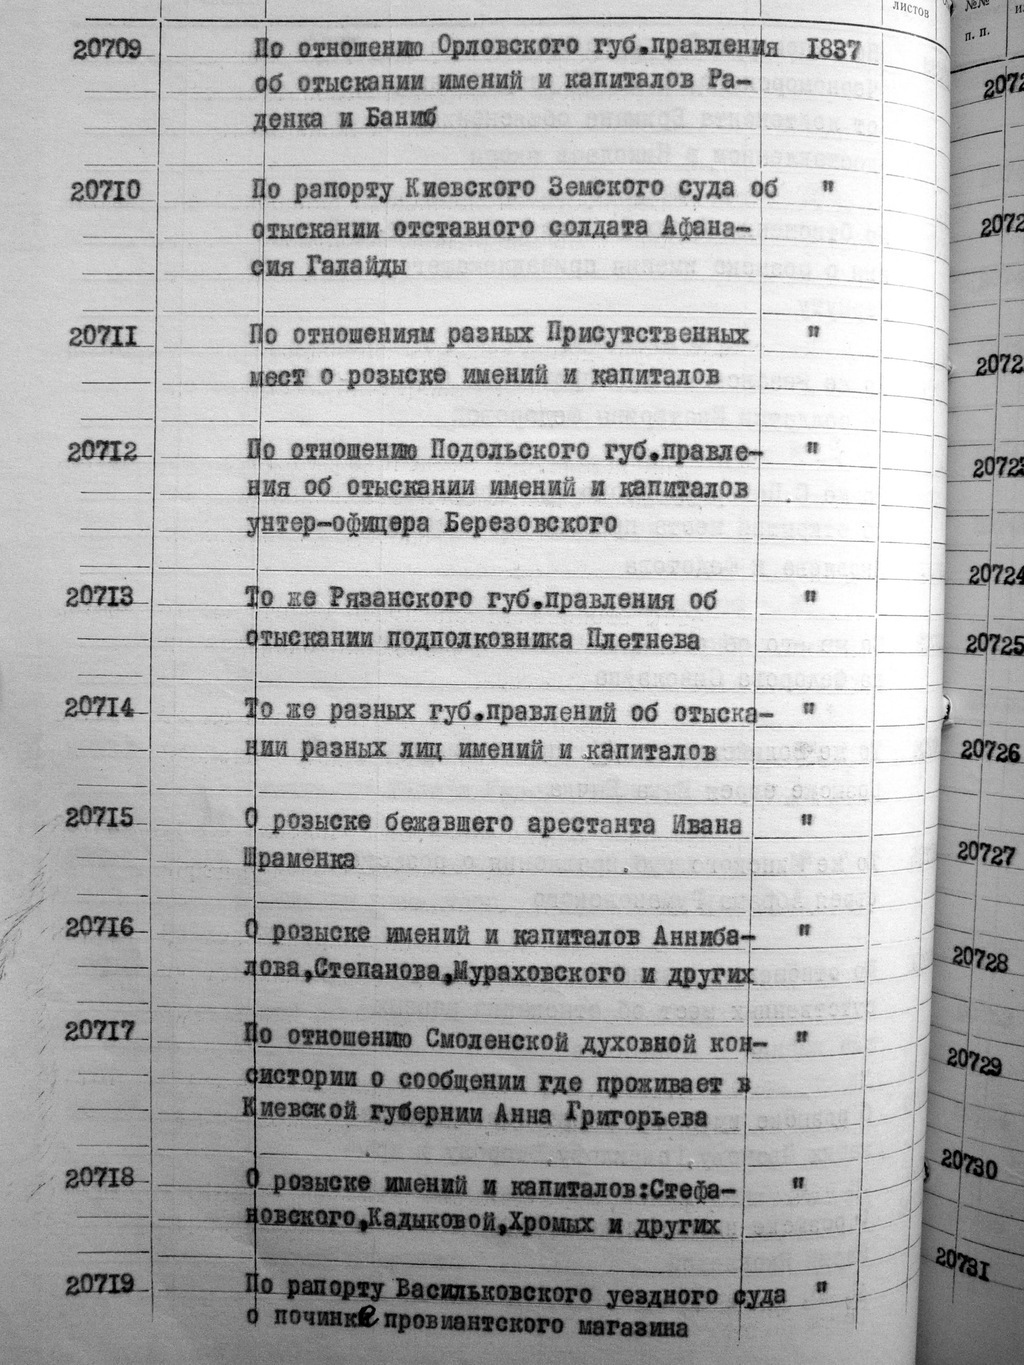 листов
№№
п. п.
20709 По отношению Орловского губ.правления 1837
об отыскании имений и капиталов Ра-
денка и Баниб
20710 По рапорту Киевского Земского суда об "
отыскании отставного солдата Афана-
сия Галайды
20711 По отношениям разных Присутственных "
мест о розыске имений и капиталов
20712 По отношению Подольского губ.правле- "
ния об отыскании имений и капиталов
унтер-офицера Березовского
20713 То же Рязанского губ.правления об "
отыскании подполковника Плетнева
20714 То же разных губ.правлений об отыска- "
нии разных лиц имений и капиталов
20715 О розыске бежавшего арестанта Ивана "
Шраменка
20716 О розыске имений и капиталов Анниба- "
лова,Степанова,Мураховского и других
20717 По отношению Смоленской духовной кон- "
систории о сообщении где проживает в
Киевской губернии Анна Григорьева
20718 О розыске имений и капиталов:Стефа- "
новского,Кадыковой,Хромых и других
20719 По рапорту Васильковского уездного суда "
о починке провиантского магазина
2072
2072
2072
2072
20724
20725
20726
20727
20728
20729
20730
20731